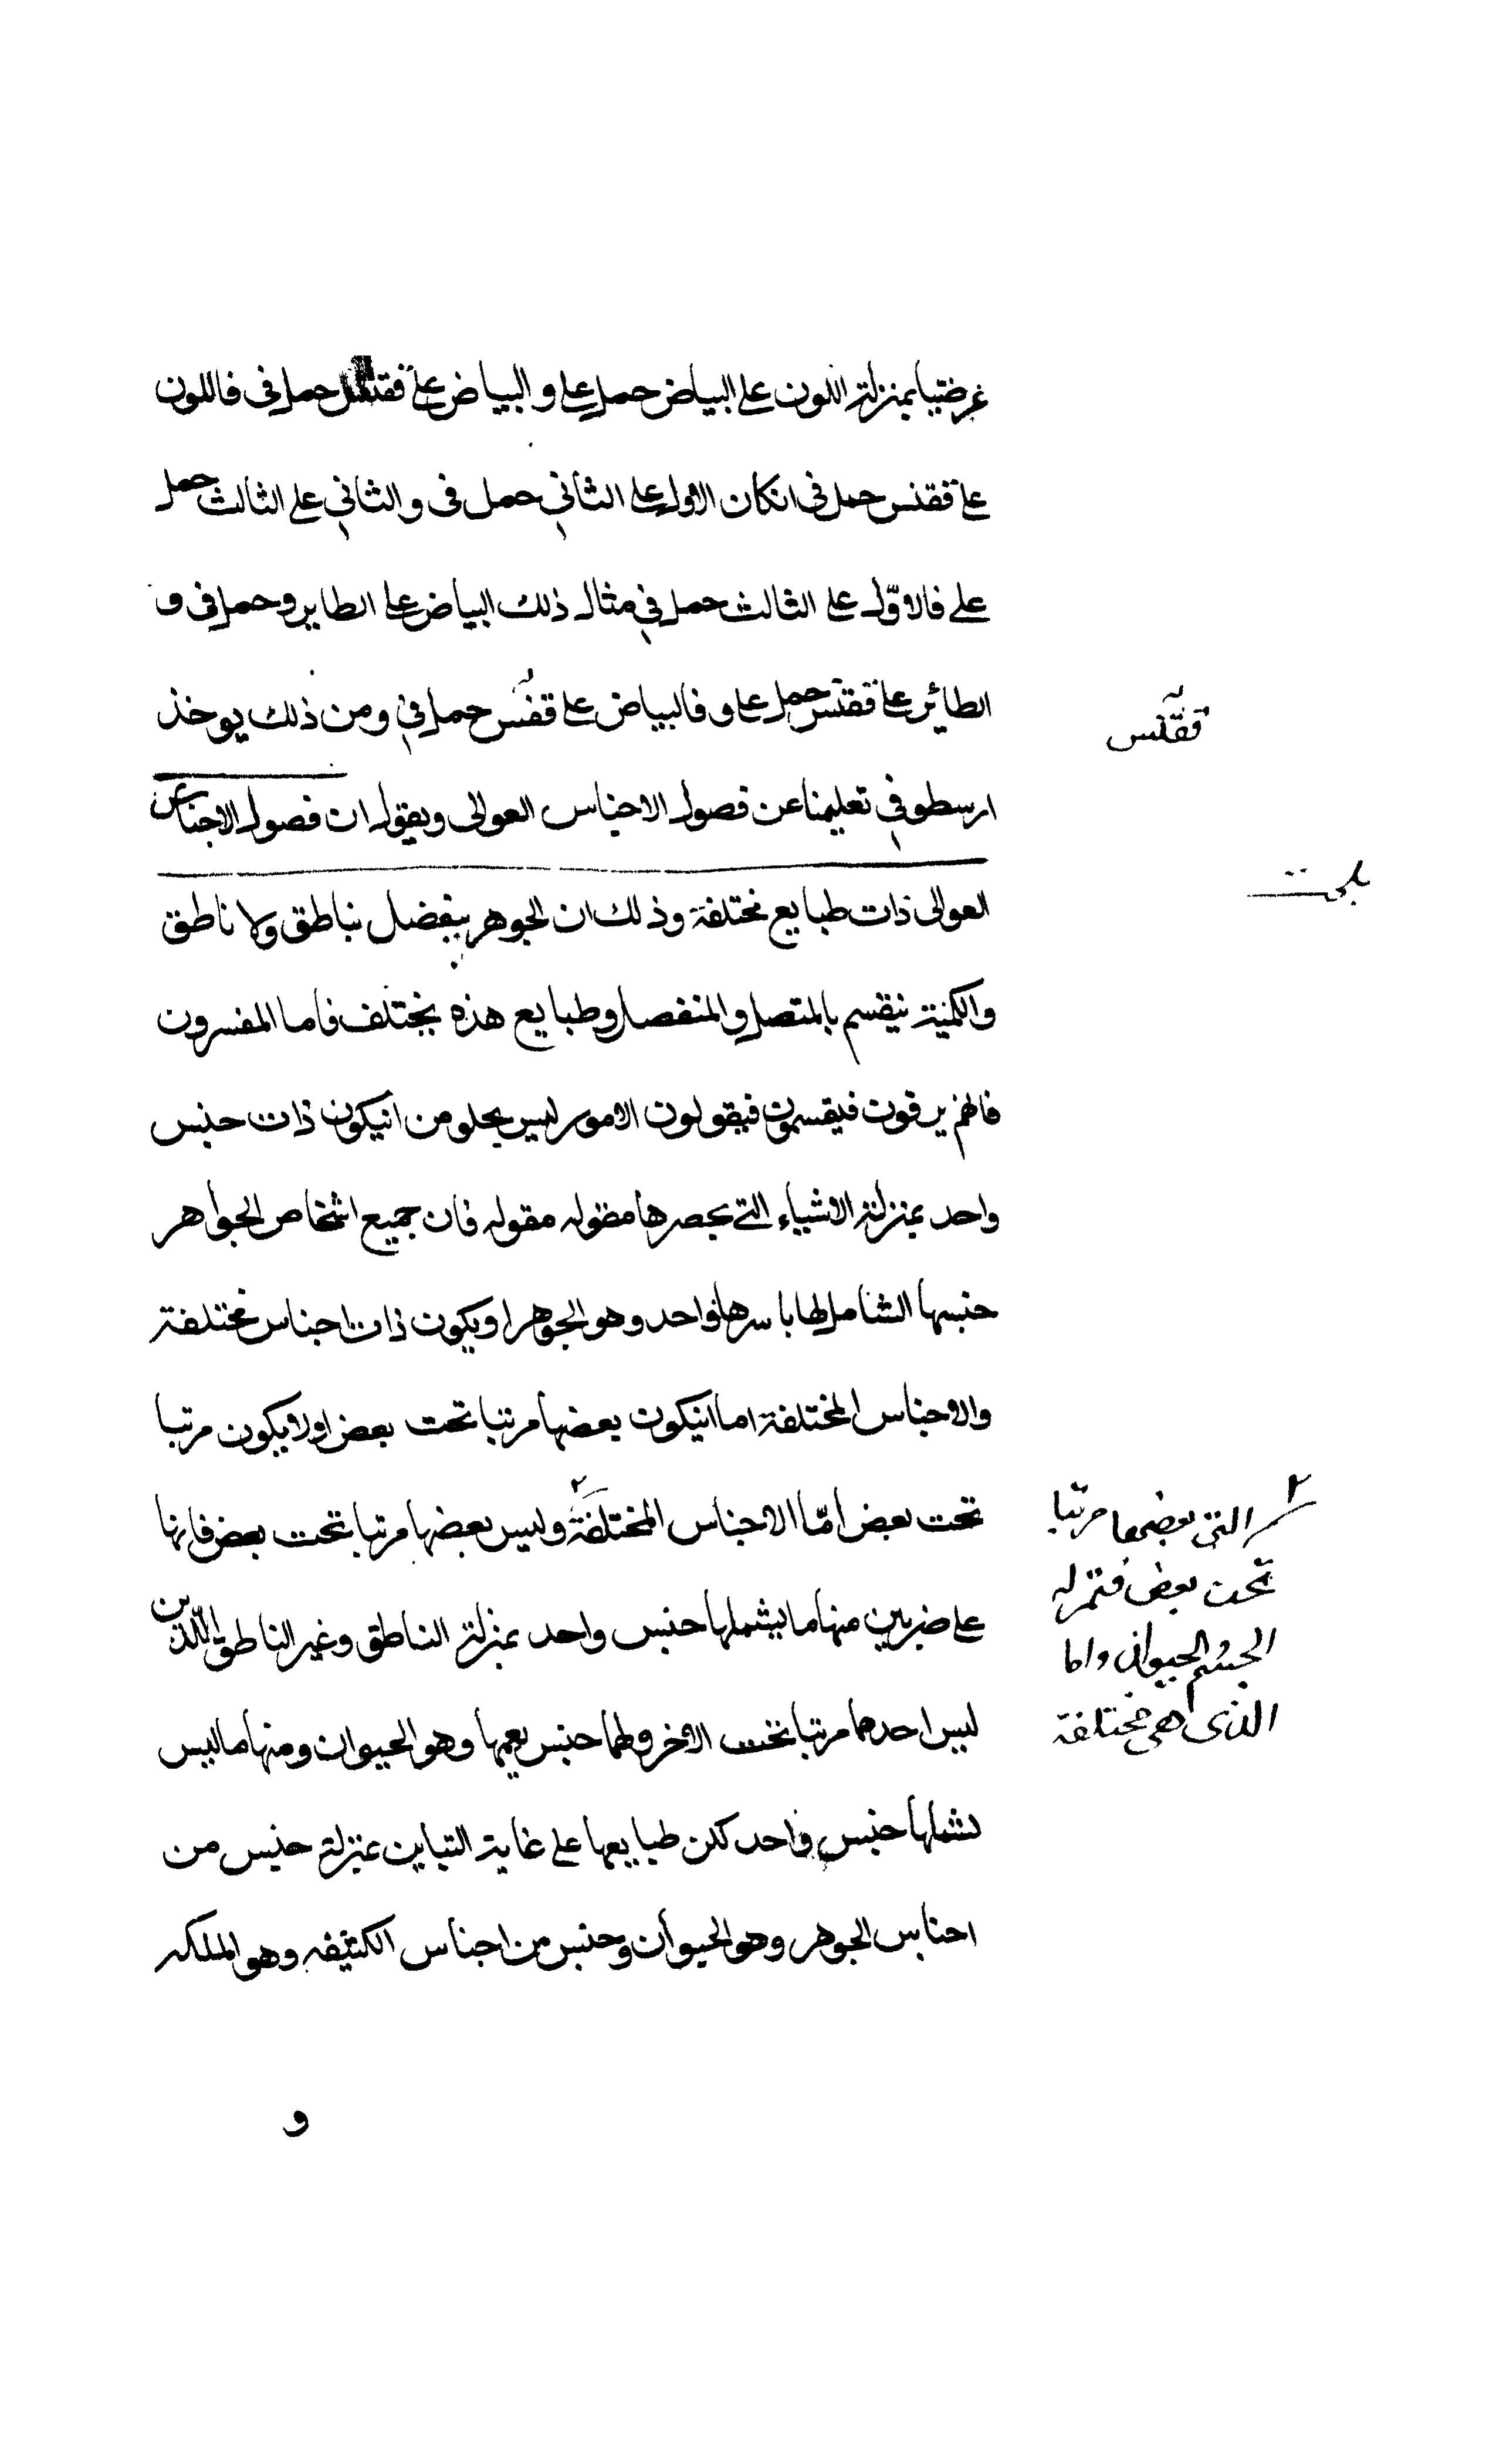 عرضيا بمنزلة اللون على البياض حمل على و البياض على ققنس حمل فى فاللون
على ققنس حمل فى انكان الاول على الثانى حمل فى و الثانى على الثالث حمل
على فالاوّل على الثالث حمل فى مثال ذلك البياض على الطاير و حمل فى و
الطائر على ققنس حمل على و فالبياض على ققنس حمل فى و من ذلك يوخذ
ققنس
ارسطو فى تعليمنا عن فصول الاجناس العوالى ويقول ان فصول الاجناس
العوالى ذات طبايع مختلفة وذلك ان الجوهر ينفصل بناطق ولا ناطق
والكمية ينقسم بالمتصل والمنفصل وطبايع هذه يختلف فاما المفسرون
فانهم يرقون فيقسمون فيقولون الامور ليس يخلو من انيكون ذات جنس
واحد بمنزلة الاشياء التى يحصرها مقوله مقوله فان جميع اشخاص الجواهر
جنسها الشامل لها باسرها واحد وهو الجوهر او يكون ذات اجناس مختلفة
والاجناس المختلفة اما انيكون بعضها مرتبا تحت بعض اولا يكون مرتبا
تحت بعض امّا الاجناس المختلفة وليس بعضها مرتبا تحت بعض فانها
٢ التى بعضها مرتبا
تحت بعض فبمنزله
الجسم الحيوان واما
الذى هى مختلفة
على ضربين منها ما يشملها جنس واحد بمنزلة الناطق وغير الناطق اللّذين
ليس احدهما مرتبا تحت الاخر ولهما جنس يعمها وهو الحيوان ومنها ما ليس
يشملها جنس واحد لكن طبايعها على غاية التباين بمنزلة جنس من
اجناس الجوهر وهو الحيوان وجنس من اجناس الكيفيه وهو الملكه
و